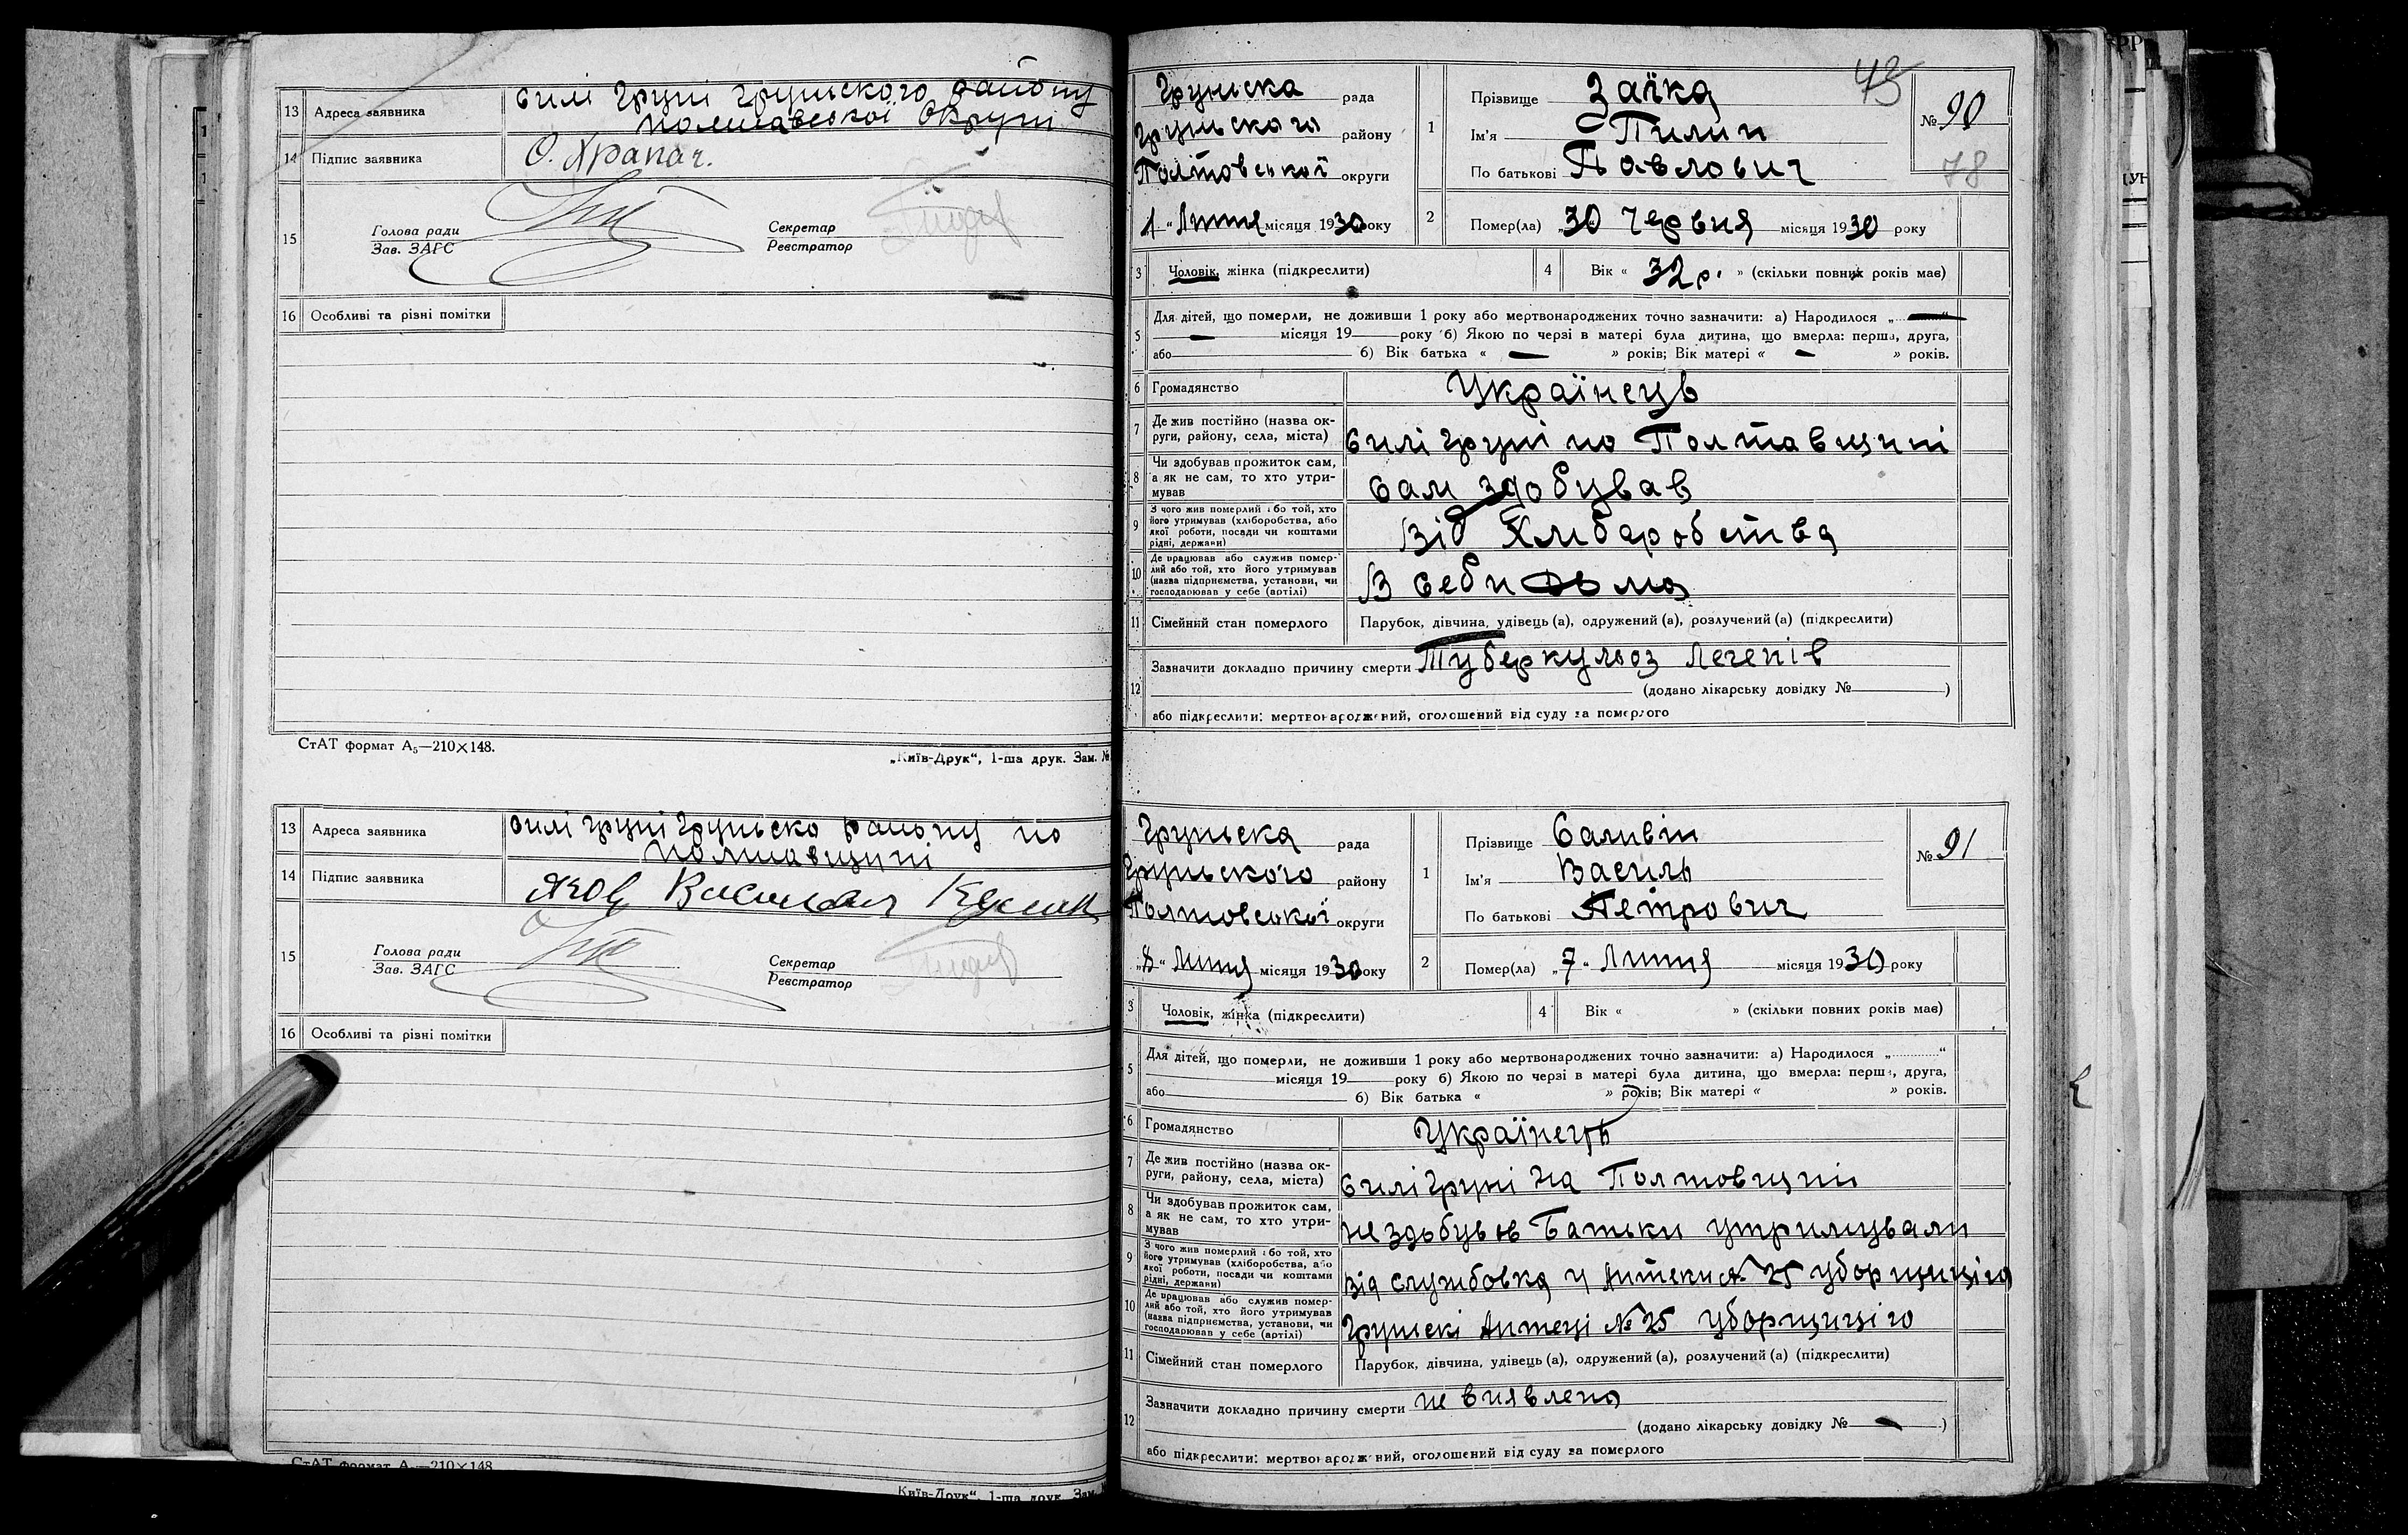 13 Адреса заявника
силі Груні Грунського району
Полтавської Округи
14 Підпис заявника
О. Храпач.
15
Голова ради
Зав. ЗАГС
Секретар
Реєстратор
16 Особливі та різні помітки
СтАТ формат А5—210×148.
„Київ-Друк“, 1-ша друк. Зам. №
13 Адреса заявника
силі Груні Груньско району по
Полтавщині
14 Підпис заявника
Яков
15
Голова ради
Зав. ЗАГС
Секретар
Реєстратор
16 Особливі та різні помітки
СтАТ формат А5—210×148
Київ-Друк“, 1-ша друк. Зам.
43
Грунська рада
Грунського району
Полтовської округи
„1“ Липня місяця 1930 року
1
Прізвище Заїка
Ім'я Пилип
По батькові Павлович
№ 90
78
2 Помер(ла) „30 Червня місяця 1930 року
3 Чоловік, жінка (підкреслити)
4 Вік « 32 р. » (скільки повних років має)
5 Для дітей, що померли, не доживши 1 року або мертвонароджених точно зазначити: а) Народилося „ — “
— місяця 19 року б) Якою по черзі в матері була дитина, що вмерла: перша, друга,
або б) Вік батька « — » років; Вік матері « — » років.
6 Громадянство Українець
7 Де жив постійно (назва ок-
руги, району, села, міста) силі Груні по Полтавщині
8 Чи здобував прожиток сам,
а як не сам, то хто утри-
мував
сам здобував
9 З чого жив померлий або той, хто
його утримував (хліборобства, або
якої роботи, посади чи коштами
рідні, держави)
Від Хлибаробства
10 Де працював або служив помер-
лий або той, хто його утримував
(назва підприємства, установи, чи
господарював у себе (артілі)
В себи дома
11 Сімейний стан померлого Парубок, дівчина, удівець (а), одружений (а), розлучений (а) (підкреслити)
12 Зазначити докладно причину смерти Туберкульоз Легенів
(додано лікарську довідку № )
або підкреслити: мертвонароджений, оголошений від суду за померлого
Грунська рада
Грунського району
Полтовської округи
„8“ Липня місяця 1930 року
1
Прізвище Саливін
Ім'я Василь
По батькові Петрович
№ 91
2 Помер(ла) „7“ Липня місяця 1930 року
3 Чоловік, жінка (підкреслити)
4 Вік « » (скільки повних років має)
5 Для дітей, що померли, не доживши 1 року або мертвонароджених точно зазначити: а) Народилося „ “
місяця 19 року б) Якою по черзі в матері була дитина, що вмерла: перша, друга,
або б) Вік батька « » років; Вік матері « » років.
6 Громадянство Українець
7 Де жив постійно (назва ок-
руги, району, села, міста) силі Груні на Полтовщині
8 Чи здобував прожиток сам,
а як не сам, то хто утри-
мував
не здобував Батьки утримували
9 З чого жив померлий або той, хто
його утримував (хліборобства, або
якої роботи, посади чи коштами
рідні, держави)
Від службовка у Аптеки № 25 уборщицію
10 Де працював або служив помер-
лий або той, хто його утримував
(назва підприємства, установи, чи
господарював у себе (артілі)
Грунскі Аптеці № 25 уборщицію
11 Сімейний стан померлого Парубок, дівчина, удівець (а), одружений (а), розлучений (а) (підкреслити)
12 Зазначити докладно причину смерти не виявлено
(додано лікарську довідку № — )
або підкреслити: мертвонароджений, оголошений від суду за померлого